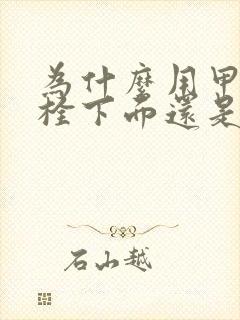 為什麼用甲
栓下面還是
石山越